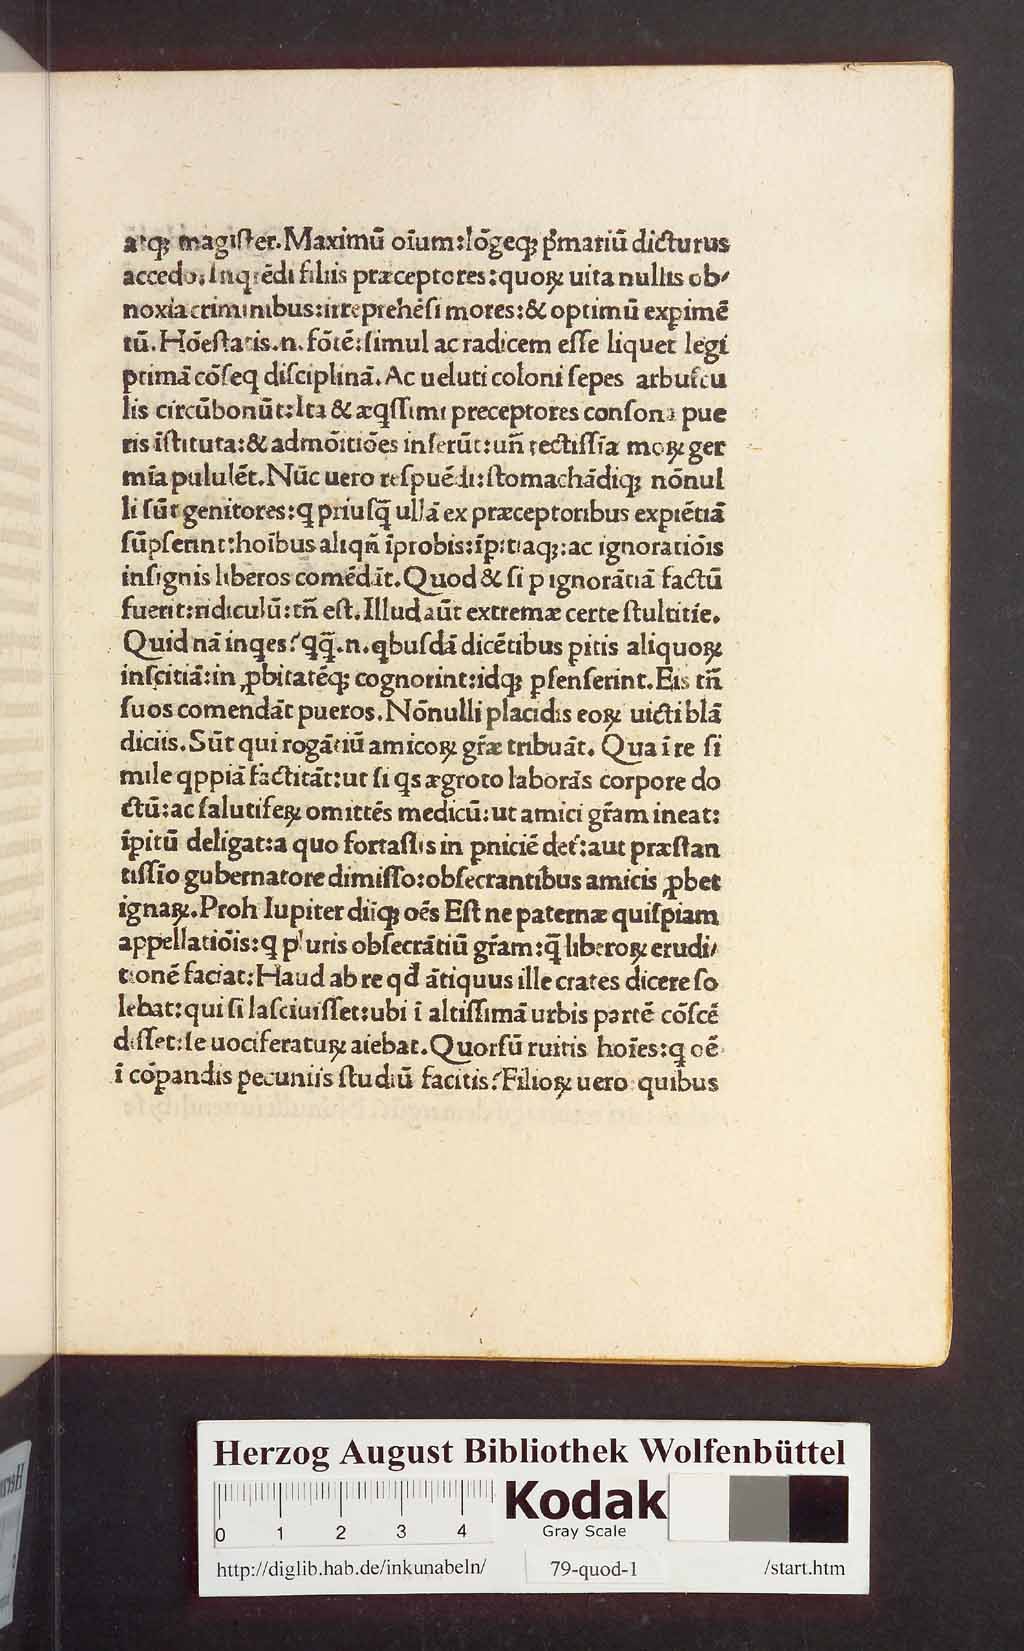 atqꝫ magiſter.Maximū oīum:lōgeqꝫ p̄mariū dicturus
accedo.Inqrēdi filiis præceptores:quoꝝ uita nullis ob⸗
noxia criminibus:irreprehēſi mores:& optimū exꝑimē
tū.Hōeſtatis.n.fōtē:ſimul ac radicem eſſe liquet legi
primā cōſeq diſciplinā.Ac ueluti coloni ſepes arbuſcu
lis circūbonūt:Ita & æqſſimi preceptores conſona pue
ris īſtituta:& admōitiōes inſerūt:uñ rectiſſīa moꝝ ger
mīa pululēt.Nūc uero reſpuēdi:ſtomachādiqꝫ nōnul
li ſūt genitores:q priuſq̄ ullā ex præceptoribus exꝑiētiā
ſūpſerint:hoībus aliqñ īprobis:īꝑitiaqꝫ:ac ignoratiōis
inſignis liberos comēdāt.Quod & ſi ꝑ ignorātiā factū
fuerit:ridiculū:tñ eſt.Illud aūt extremæ certe ſtultitie.
Quid nā inqes?qq̄.n.qbuſdā dicētibus ꝑitis aliquoꝝ
inſcitiā:in ꝓbitatēqꝫ cognorint:idqꝫ ꝑſenſerint.Eis tñ
ſuos comendāt pueros.Nōnulli placidis eoꝝ uicti blā
diciis.Sūt qui rogātiū amicoꝝ gr̄æ tribuāt. Qua ī re ſi
mile qppiā factitāt:ut ſi qs ægroto laborās corpore do
ctū:ac ſalutifeꝝ omittēs medicū:ut amici gr̄am ineat:
īꝑitū deligat:a quo fortaſſis in ꝑniciē det̄:aut præſtan
tiſſīo gubernatore dimiſſo:obſecrantibus amicis ꝓbet
ignaꝝ.Proh Iupiter diiqꝫ oēs Eſt ne paternæ quiſpiam
appellatiōis:q pluris obſecrātiū gr̄am:q̄ liberoꝝ erudi⸗
tionē faciat:Haud ab re qd̄ ātiquus ille crates dicere ſo
lebat:qui ſi laſciuiſſet:ubi ī altiſſimā urbis partē cōſcē
diſſet:ſe uociferatuꝝ aiebat.Quorſū ruitis hoīes:q oē
ī cōꝑandis pecuniis ſtudiū facitis?Filioꝝ uero quibus
Herzog August Bibliothek Wolfenbüttel
0 1 2 3 4
Kodak
Gray Scale
http://diglib.hab.de/inkunabeln/ 79-quod-1 /start.htm